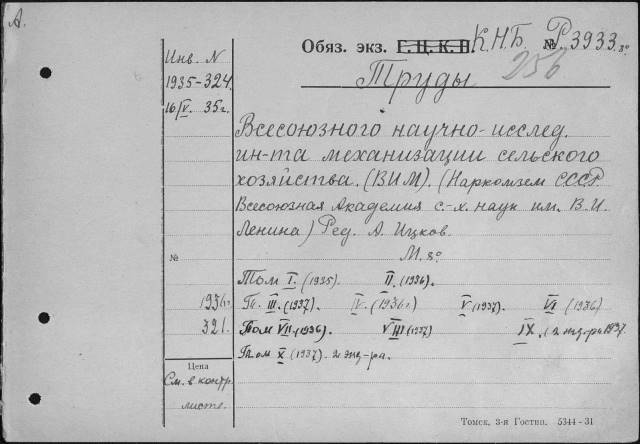 А.
Обяз. экз. Г. Ц. К. П. К.Н.Б. № Р 3933. 8°
256
Инв. N
1935-324
16/IV. 35г.
Труды
Всесоюзного научно-исслед.
ин-та механизации сельского
хозяйства. (ВИМ). (Наркомзем СССР
Всесоюзная Академия с.-х. наук им. В.И.
Ленина) Ред. А. Ицков.
М. 8°
№
Том I. (1935) II. (1936).
1936г. Т. III. (1937). IV. (1936г.) V. (1937). VI (1936)
321. Том VII. (1936). VIII (1937) IX. (2 экз-ра 1937.
Том X (1937). 2 экз-ра.
Цена
См. в контр.
листе.
Томск, 3-я Гостип. 5344-31